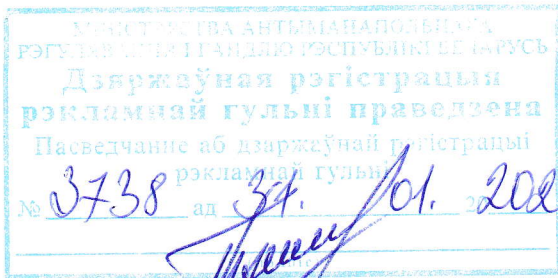 МІНІСТЭРСТВА АНТЫМАНАПОЛЬНАГА
РЭГУЛЯВАННЯ І ГАНДЛЮ РЭСПУБЛІКІ БЕЛАРУСЬ
Дзяржаўная рэгістрацыя
рэкламнай гульні праведзена
Пасведчанне аб дзяржаўнай рэгістрацыі
рэкламнай гульні
№ 3738 ад 31. 01. 202